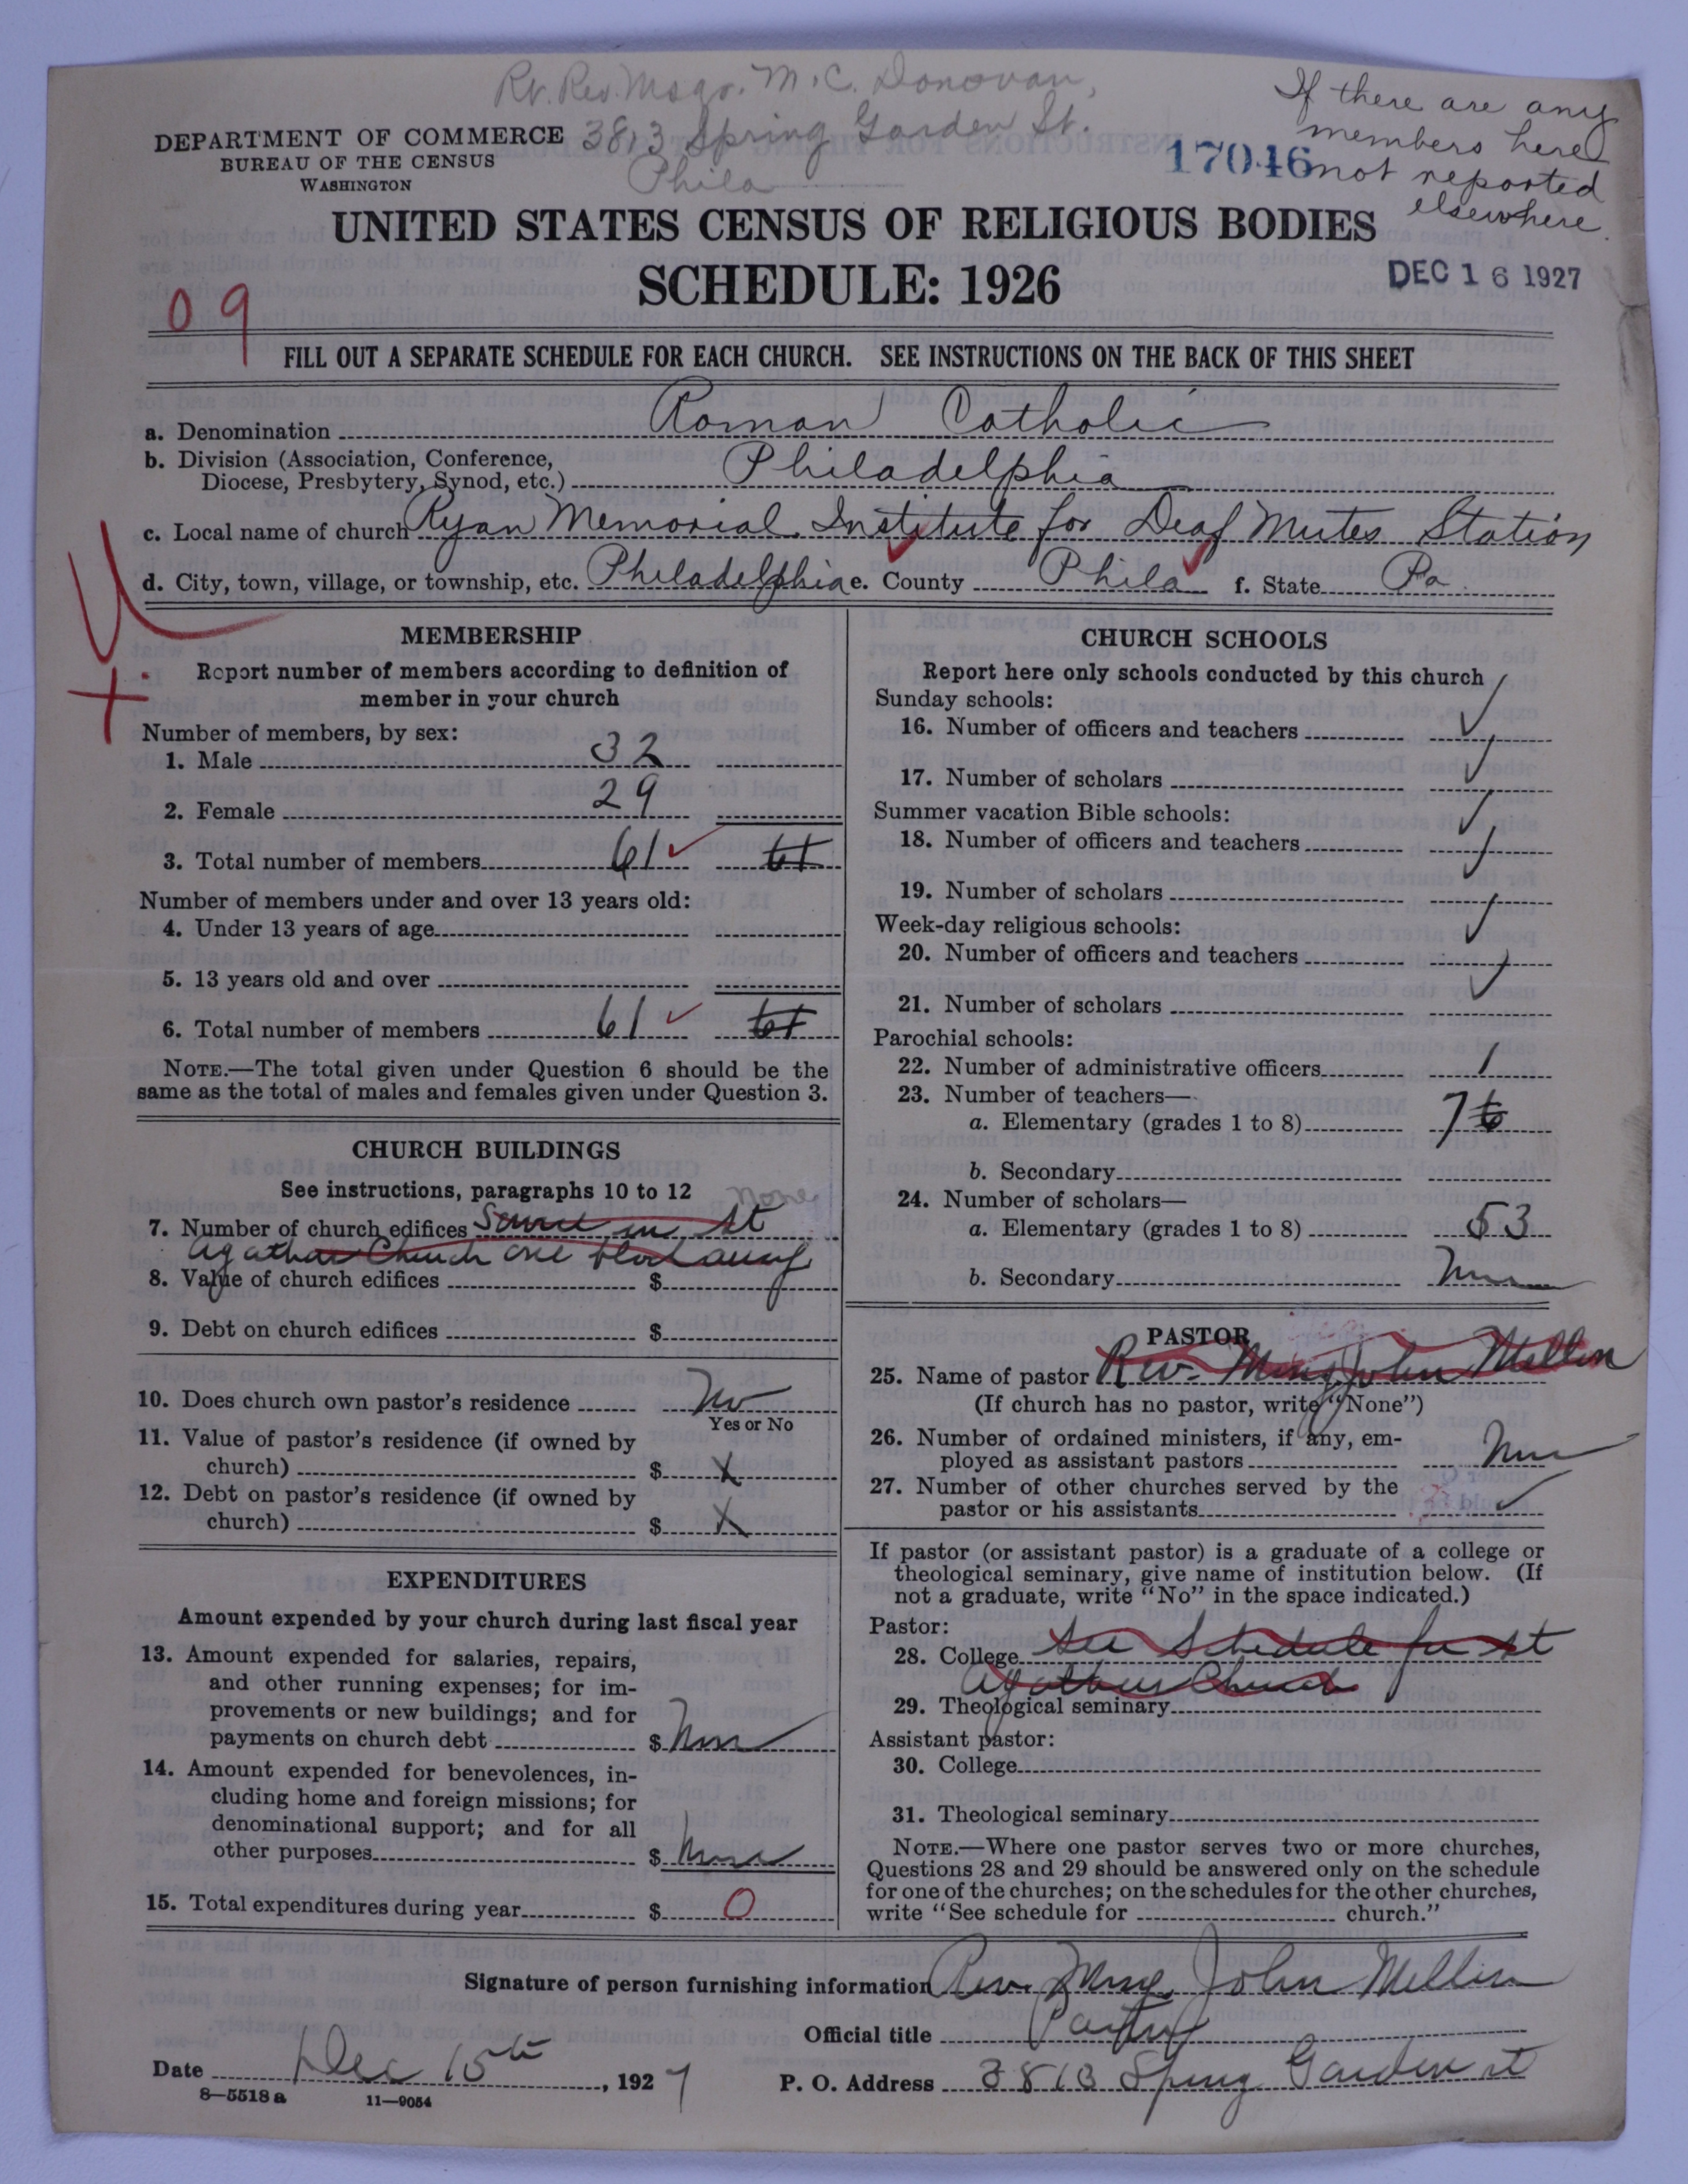 Rt. Rev. Msgr. M. C. Donovan,
3813 Spring Garden St.
Phila
If there are any
members here
not reported
elsewhere.
DEPARTMENT OF COMMERCE
BUREAU OF THE CENSUS
WASHINGTON
17046
UNITED STATES CENSUS OF RELIGIOUS BODIES
SCHEDULE: 1926
DEC 16 1927
09
FILL OUT A SEPARATE SCHEDULE FOR EACH CHURCH. SEE INSTRUCTIONS ON THE BACK OF THIS SHEET
a. Denomination Roman Catholic
b. Division (Association, Conference,
Diocese, Presbytery, Synod, etc.) Philadelphia
c. Local name of church Ryan Memorial Institute for Deaf Mutes Station
d. City, town, village, or township, etc. Philadelphia e. County Phila f. State Pa.
MEMBERSHIP
Report number of members according to definition of
member in your church
Number of members, by sex:
1. Male 32
2. Female 29
3. Total number of members 61
Number of members under and over 13 years old:
4. Under 13 years of age
5. 13 years old and over
6. Total number of members 61
NOTE.—The total given under Question 6 should be the
same as the total of males and females given under Question 3.
CHURCH BUILDINGS
See instructions, paragraphs 10 to 12
None
7. Number of church edifices in St
Agathas Church one block away
8. Value of church edifices $
9. Debt on church edifices $
10. Does church own pastor's residence No
Yes or No
11. Value of pastor's residence (if owned by
church) $ X
12. Debt on pastor's residence (if owned by
church) $ X
EXPENDITURES
Amount expended by your church during last fiscal year
13. Amount expended for salaries, repairs,
and other running expenses; for im-
provements or new buildings; and for
payments on church debt $ None
14. Amount expended for benevolences, in-
cluding home and foreign missions; for
denominational support; and for all
other purposes $ None
15. Total expenditures during year $ 0
CHURCH SCHOOLS
Report here only schools conducted by this church
Sunday schools:
16. Number of officers and teachers
17. Number of scholars
Summer vacation Bible schools:
18. Number of officers and teachers
19. Number of scholars
Week-day religious schools:
20. Number of officers and teachers
21. Number of scholars
Parochial schools:
22. Number of administrative officers 1
23. Number of teachers—
a. Elementary (grades 1 to 8) 7
b. Secondary
24. Number of scholars—
a. Elementary (grades 1 to 8) 53
b. Secondary None
PASTOR
25. Name of pastor Rev. Msgr John Mellon
(If church has no pastor, write "None")
26. Number of ordained ministers, if any, em-
ployed as assistant pastors None
27. Number of other churches served by the
pastor or his assistants
If pastor (or assistant pastor) is a graduate of a college or
theological seminary, give name of institution below. (If
not a graduate, write "No" in the space indicated.)
Pastor:
28. College See Schedule for St
Agathas Church
29. Theological seminary
Assistant pastor:
30. College
31. Theological seminary
NOTE.—Where one pastor serves two or more churches,
Questions 28 and 29 should be answered only on the schedule
for one of the churches; on the schedules for the other churches,
write "See schedule for church."
Signature of person furnishing information Rev. Msgr. John Mellon
Official title Pastor
Date Dec 15th, 1927
P. O. Address 3813 Spring Garden St
8—5518a 11—9054